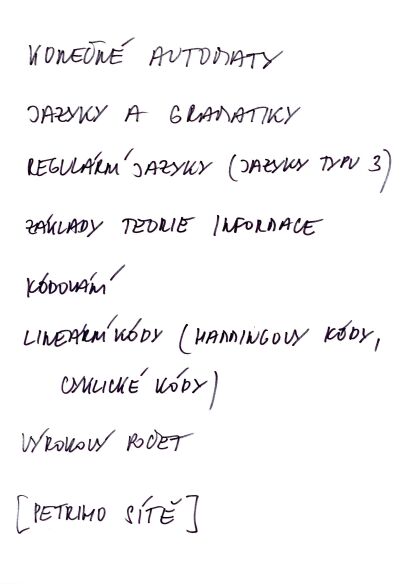 KONEČNÉ AUTOMATY
JAZYKY A GRAMATIKY
REGULÁRNÍ JAZYKY (JAZYKY TYPU 3)
ZÁKLADY TEORIE INFORMACE
KÓDOVÁNÍ
LINEÁRNÍ KÓDY (HAMMINGOVY KÓDY,
CYKLICKÉ KÓDY)
VÝROKOVÝ POČET
[PETRIHO SÍTĚ]